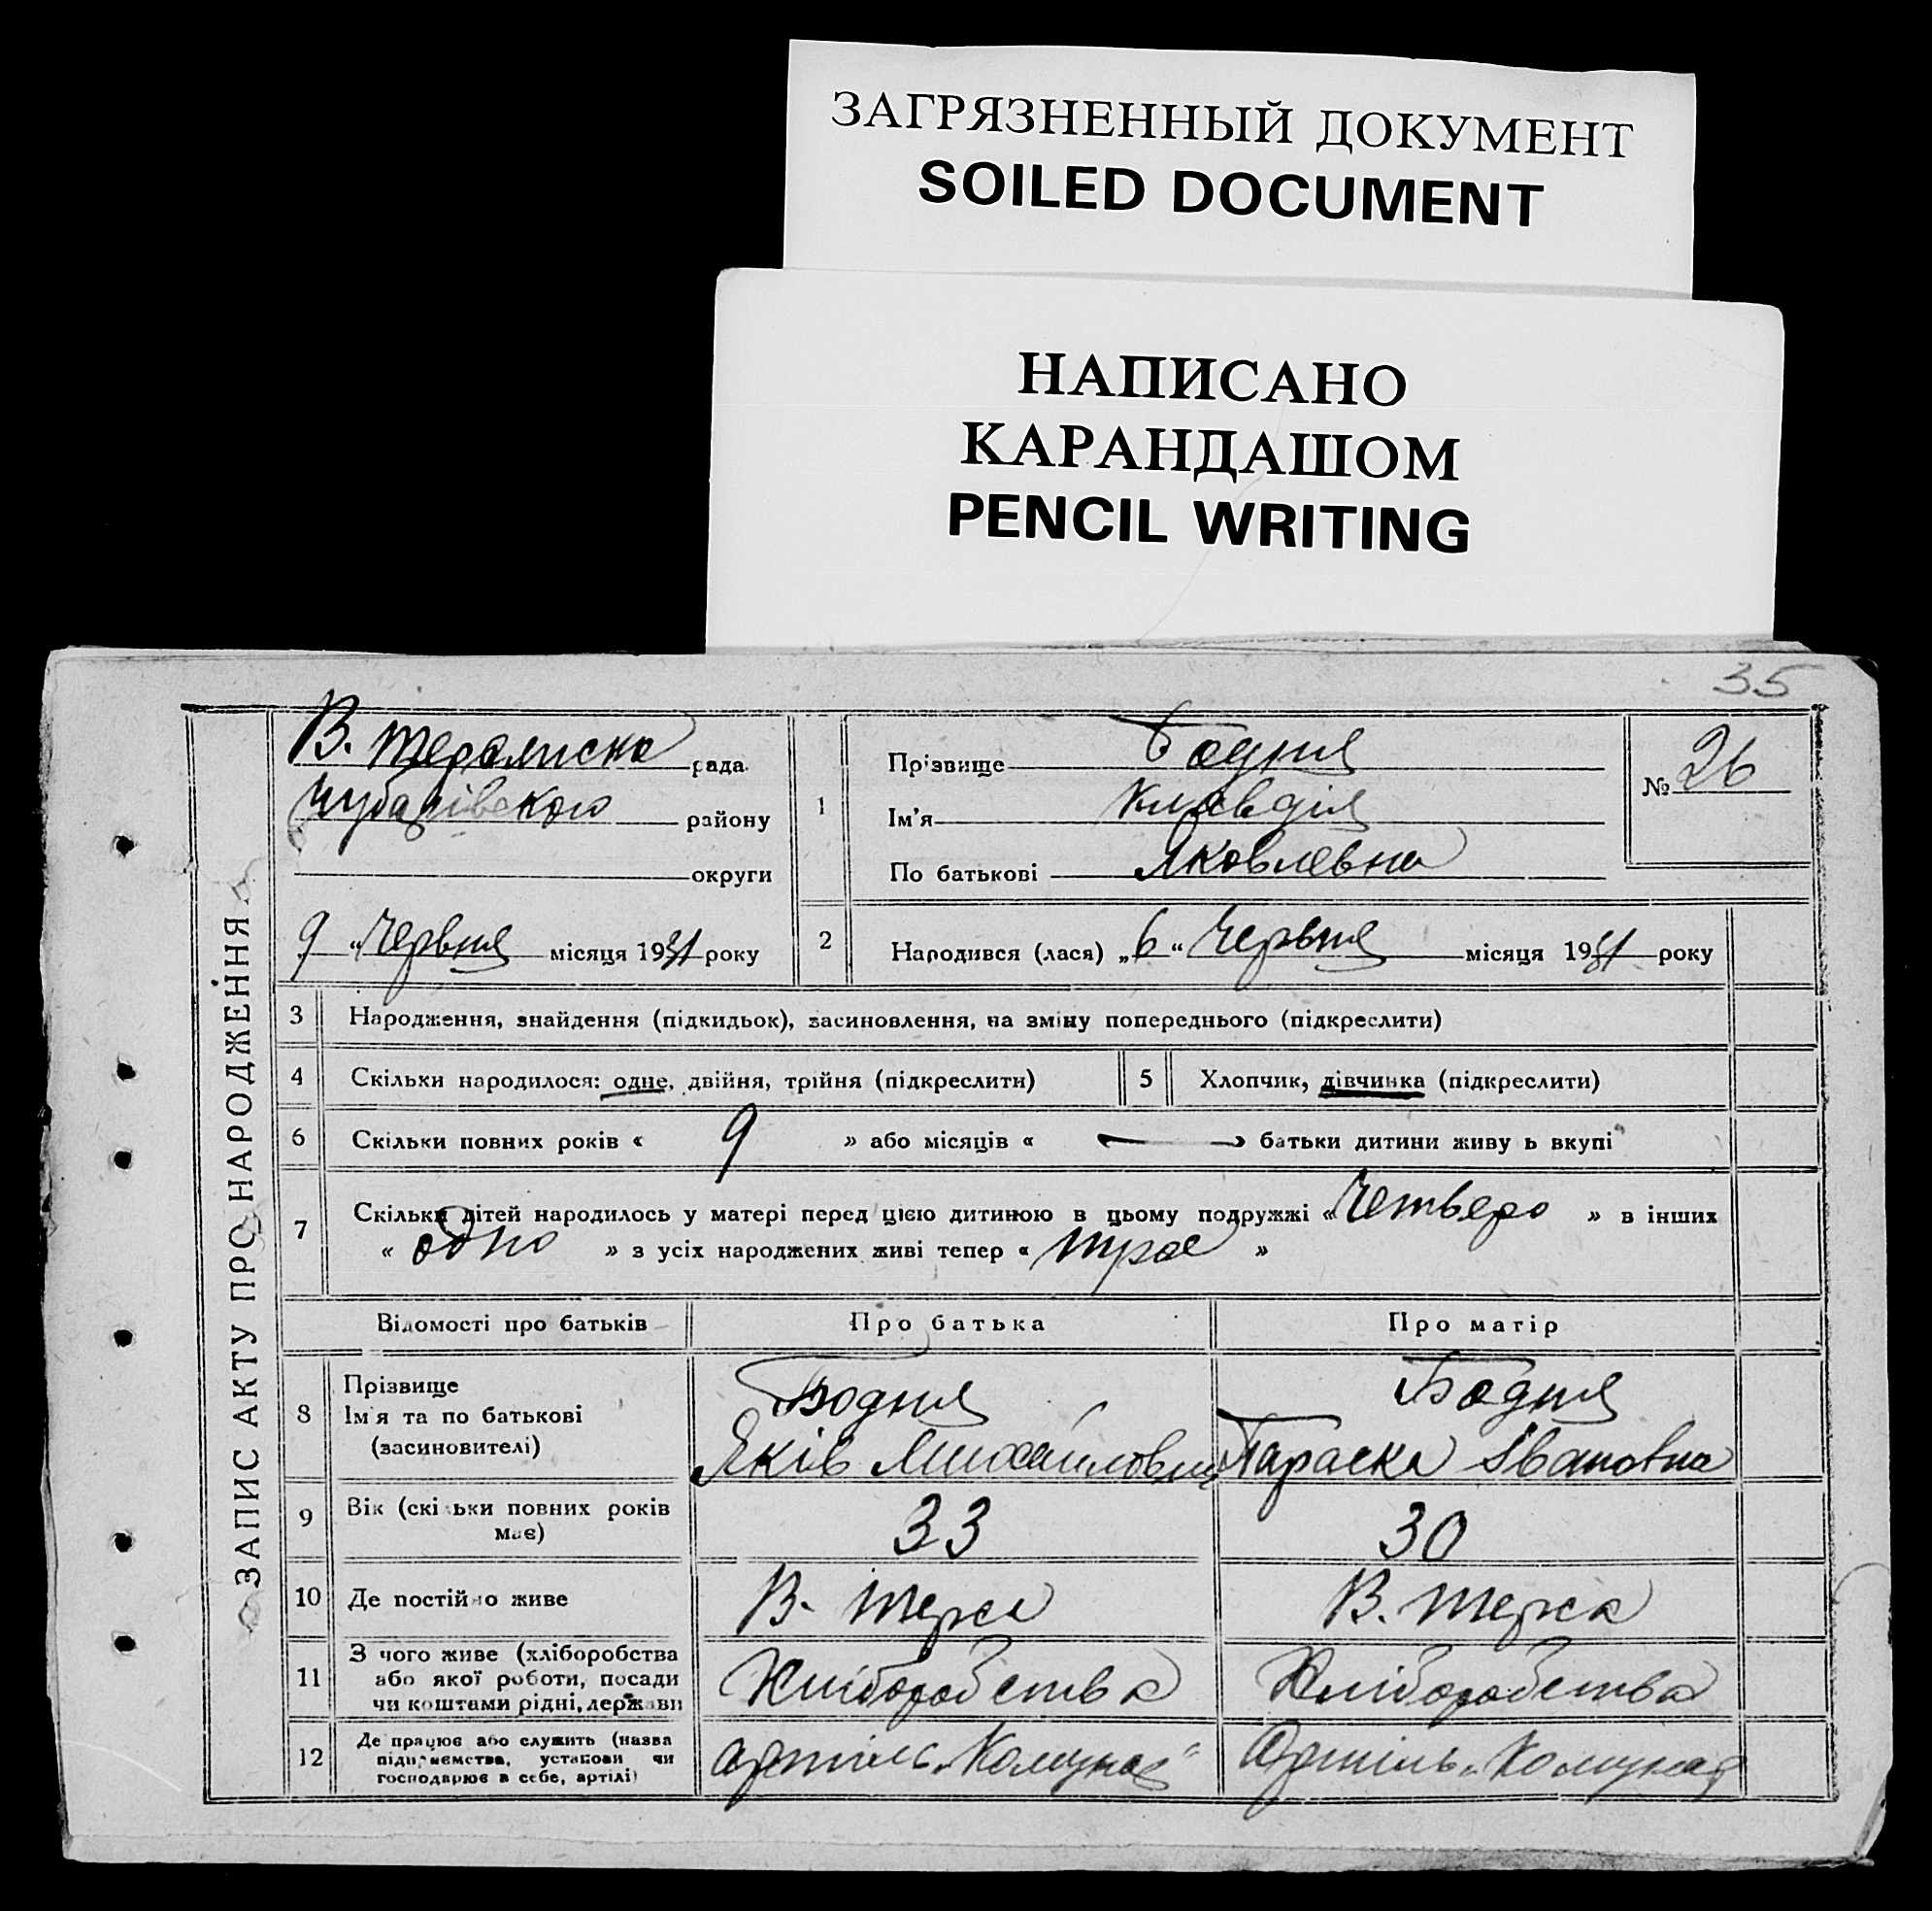 ЗАГРЯЗНЕННЫЙ ДОКУМЕНТ
SOILED DOCUMENT
НАПИСАНО
КАРАНДАШОМ
PENCIL WRITING
35
ЗАПИС АКТУ ПРО НАРОДЖЕННЯ
В. рада
району
округи
9 „ Червня місяця 1931 року
1 Прізвище Бодня
Ім'я Клавдія
По батькові Яковлевна
№ 26
2 Народився (лася) „ 6 " Червня місяця 1931 року
3 Народження, знайдення (підкидьок), засиновлення, на зміну попереднього (підкреслити)
4 Скільки народилося: одне, двійня, трійня (підкреслити)
5 Хлопчик, дівчинка (підкреслити)
6 Скільки повних років « 9 » або місяців « — » батьки дитини живу ь вкупі
7 Скільки дітей народилось у матері перед цією дитиною в цьому подружжі « Четверо » в інших
« одно » з усіх народжених живі тепер « троє »
Відомості про батьків Про батька Про матір
8 Прізвище Бодня Бодня
Ім'я та по батькові Яків Михайлович Параска Івановна
(засиновителі)
9 Вік (скільки повних років має) 33 30
10 Де постійно живе В. В.
11 З чого живе (хліборобства
або якої роботи, посади Хліборобства Хліборобства
чи коштами рідні, держави
12 Де працює або служить (назва
підприємства, установи чи Артіль „Комунар" Артіль „Комунар
господарює в себе, артілі)